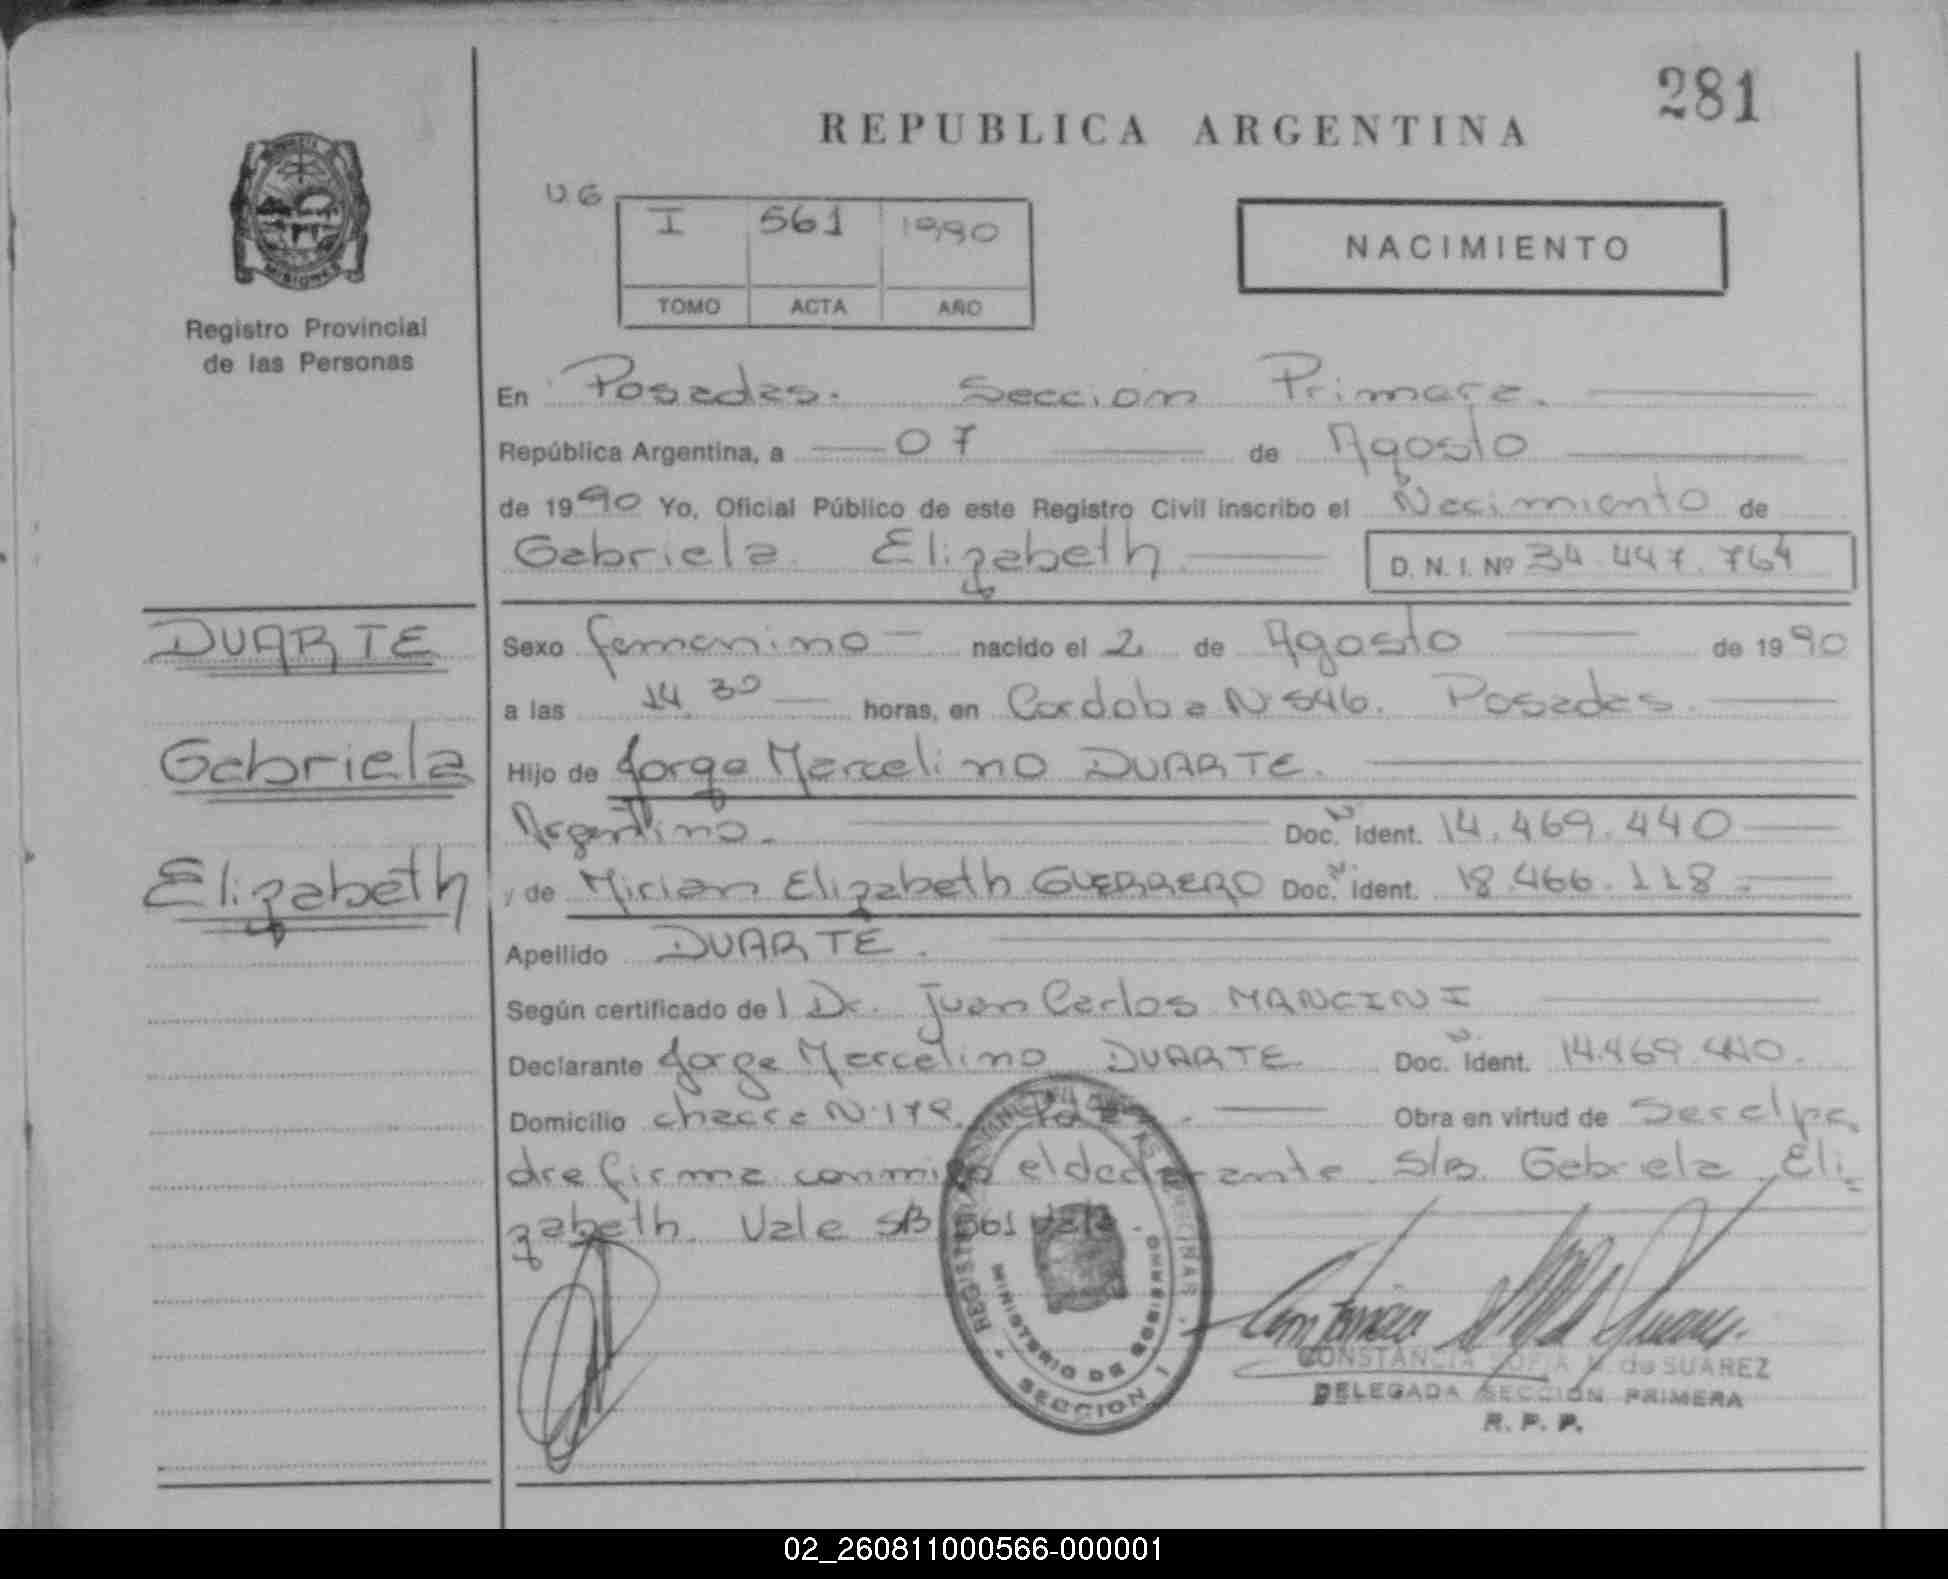 281
REPUBLICA ARGENTINA
UG
I 561 1990
TOMO ACTA AÑO
NACIMIENTO
MISIONES
Registro Provincial
de las Personas
En Posadas. Seccion Primera.
República Argentina, a 07 de Agosto
de 1990 Yo, Oficial Público de este Registro Civil inscribo el Nacimiento de
Gabriela Elizabeth D. N. I. Nº 34.447.764
DUARTE
Gabriela
Elizabeth
Sexo femenino nacido el 2 de Agosto de 1990
a las 14.30 horas, en Cordoba N 546. Posadas.
Hijo de Jorge Marcelino DUARTE.
Argentino. Doc. Ident. 14.469.440
y de Miriam Elizabeth GUERRERO Doc. Ident. 18.466.118
Apellido DUARTE.
Según certificado del Dr. Juan Carlos MANCINI
Declarante Jorge Marcelino DUARTE Doc. Ident. 14.469.440.
Domicilio chacra N 178. Obra en virtud de Ser el pa
dre firma conmigo el declarante S/B. Gabriela Eli
zabeth. Vale S/B 561 Vale.
MINISTERIO DE GOBIERNO
SECCION I
CONSTANCIA SOFIA de SUAREZ
DELEGADA SECCION PRIMERA
R. P. P.
02_260811000566-000001